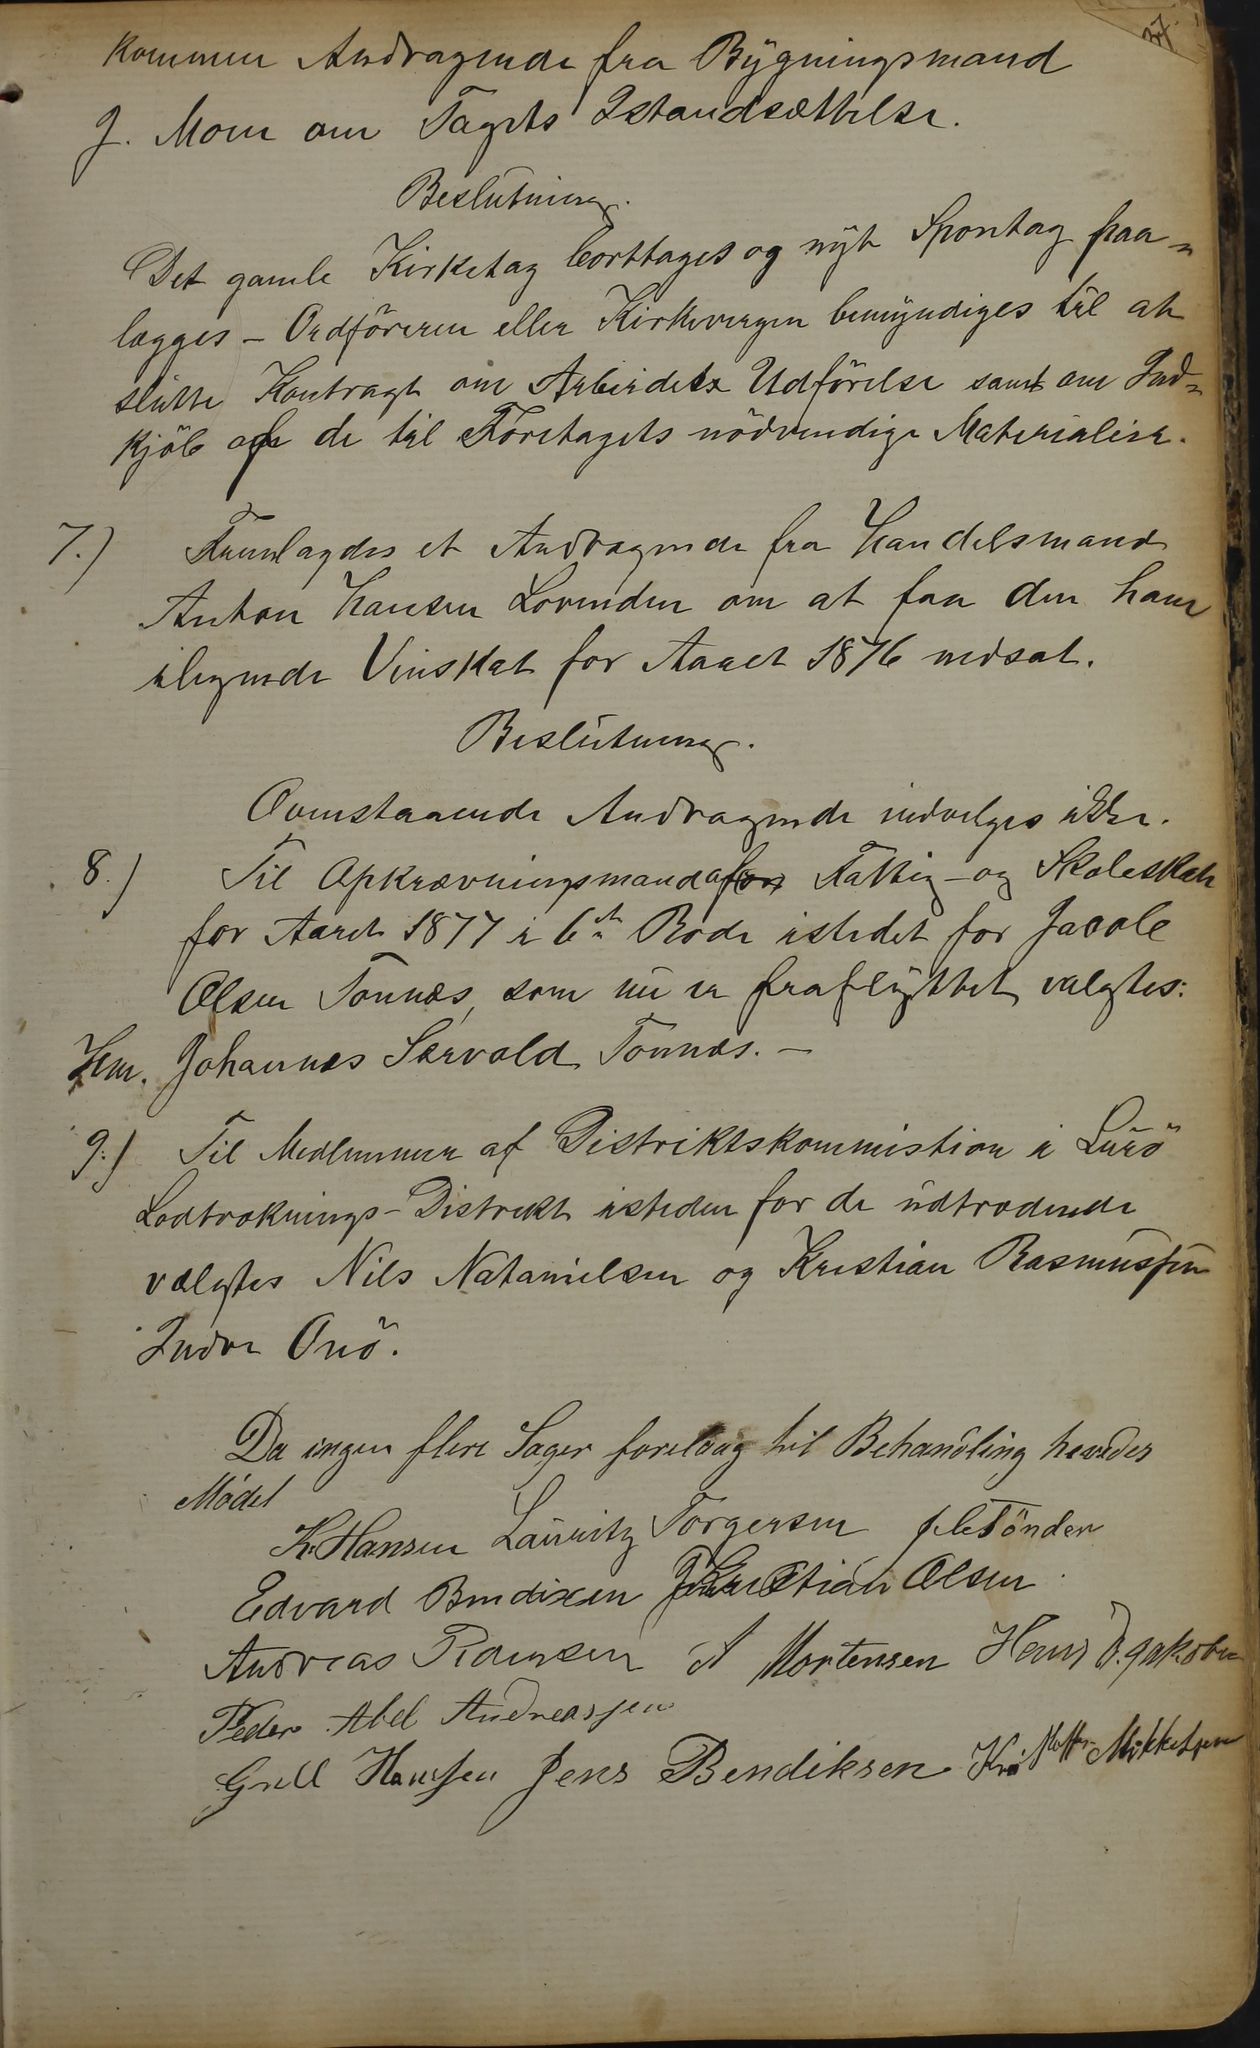 27.
kommen Andragende fra Bygningsmand
J. Moen om Tagets Istandsættelse.
Beslutning.
Det gamle Kirketag borttages og nyt Spontag paa-
lægges – Ordföreren eller Kirkevergen bemyndiges til at
slutte Kontragt om Arbeidets Udförelse samt om Ind-
kjöb af de til Företagets nödvendige Materialier.
7.) Fremlagdes et Andragende fra Handelsmand
Anton Hansen Lovunden om at faa den ham
ilignede Vinskat for Aaret 1876 nedsat.
Beslutning.
Ovenstaaende Andragende indvelges ikke.
8.) Til Opkrævningsmand af Fattig- og Skoleskat
for Aaret 1877 i 6te Rode istedet for Jacob
Olsen Tonnes, som nu er fraflyttet, valgtes:
Hm. Johannes Servold Tonnes. –
9.) Til Medlemmer af Distriktskommistion i Lurö
Lodtræknings-Distrikt isteden for de udtrædende
vælgtes Nils Natanielsen og Kristian Rasmussen
Indre Onö.
Da ingen flere Sager forelaag til Behandling hævedes
Mødet
K. Hansen Lauritz Torgersen Tönder
Edvard Bendixen Kristian Olsen
Andreas A Mortensen Hans D. Jakobsen
Peder Abel Andreassen
Grell Hanssen Jens Bendiksen Mikkelsen